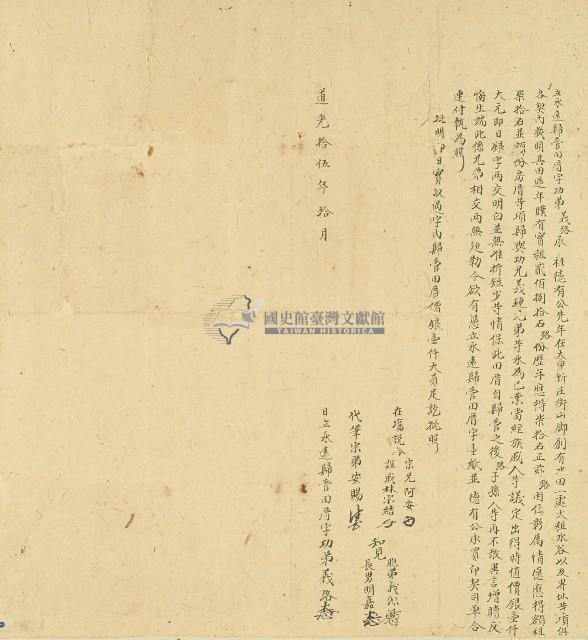 立永遠歸管田厝字功弟義路承祖德有公先年在大甲新庄衡山脚創有水田一處大租水谷以及界址等項俱
各契內載明其田遞年贌有實租貳佰捌拾石路份歷年應得柒拾石正茲路因住彰屬情愿應得額租
柒拾石並份房厝等項歸與功兄義 兄弟等永為己業當經族戚人等議定出得時值價銀壹仟
大元即日銀字兩交明白並無准折短少等情保此田厝自歸管之後路子孫人等再不敢異言增贖反
悔生端此係兄弟相交兩無迫勒今欲有憑立永遠歸管田厝字壹紙並德有公承買印契司單合
連付執為照
批明即日實收過字內歸管田厝價銀壹仟大員足訖批照
宗兄阿安
在場說合
誼戚林宗結
代筆宗弟安賜
知見
胞弟義
長男明嘉
道光拾伍年拾月 日立永遠歸管田厝字功弟義路
國史館臺灣文獻館
TAIWAN HISTORICA